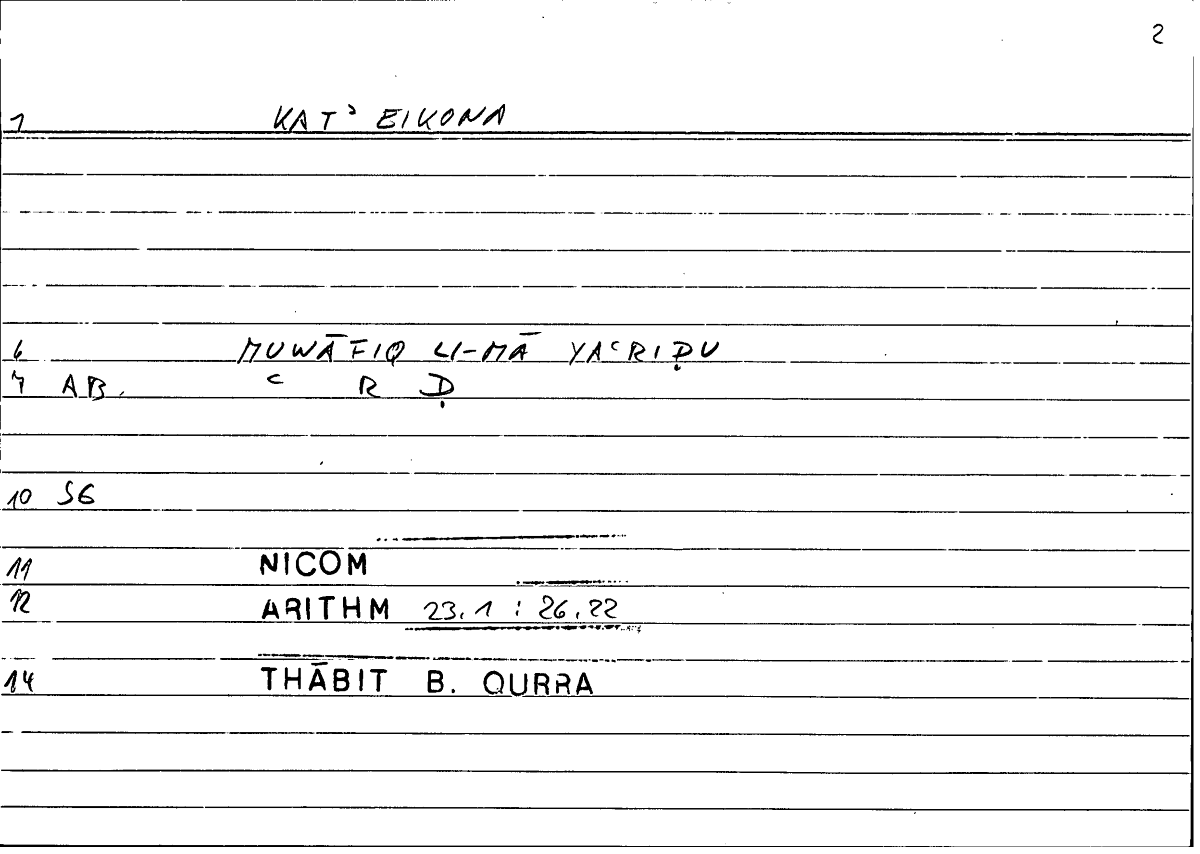 2
1 KAT' EIKONA
6 MUWĀFIQ LI-MĀ YAʿRIḌU
7 AB. ʿ R Ḍ
10 SG
11 NICOM
12 ARITHM 23.1 : 26.22
14 THĀBIT B. QURRA